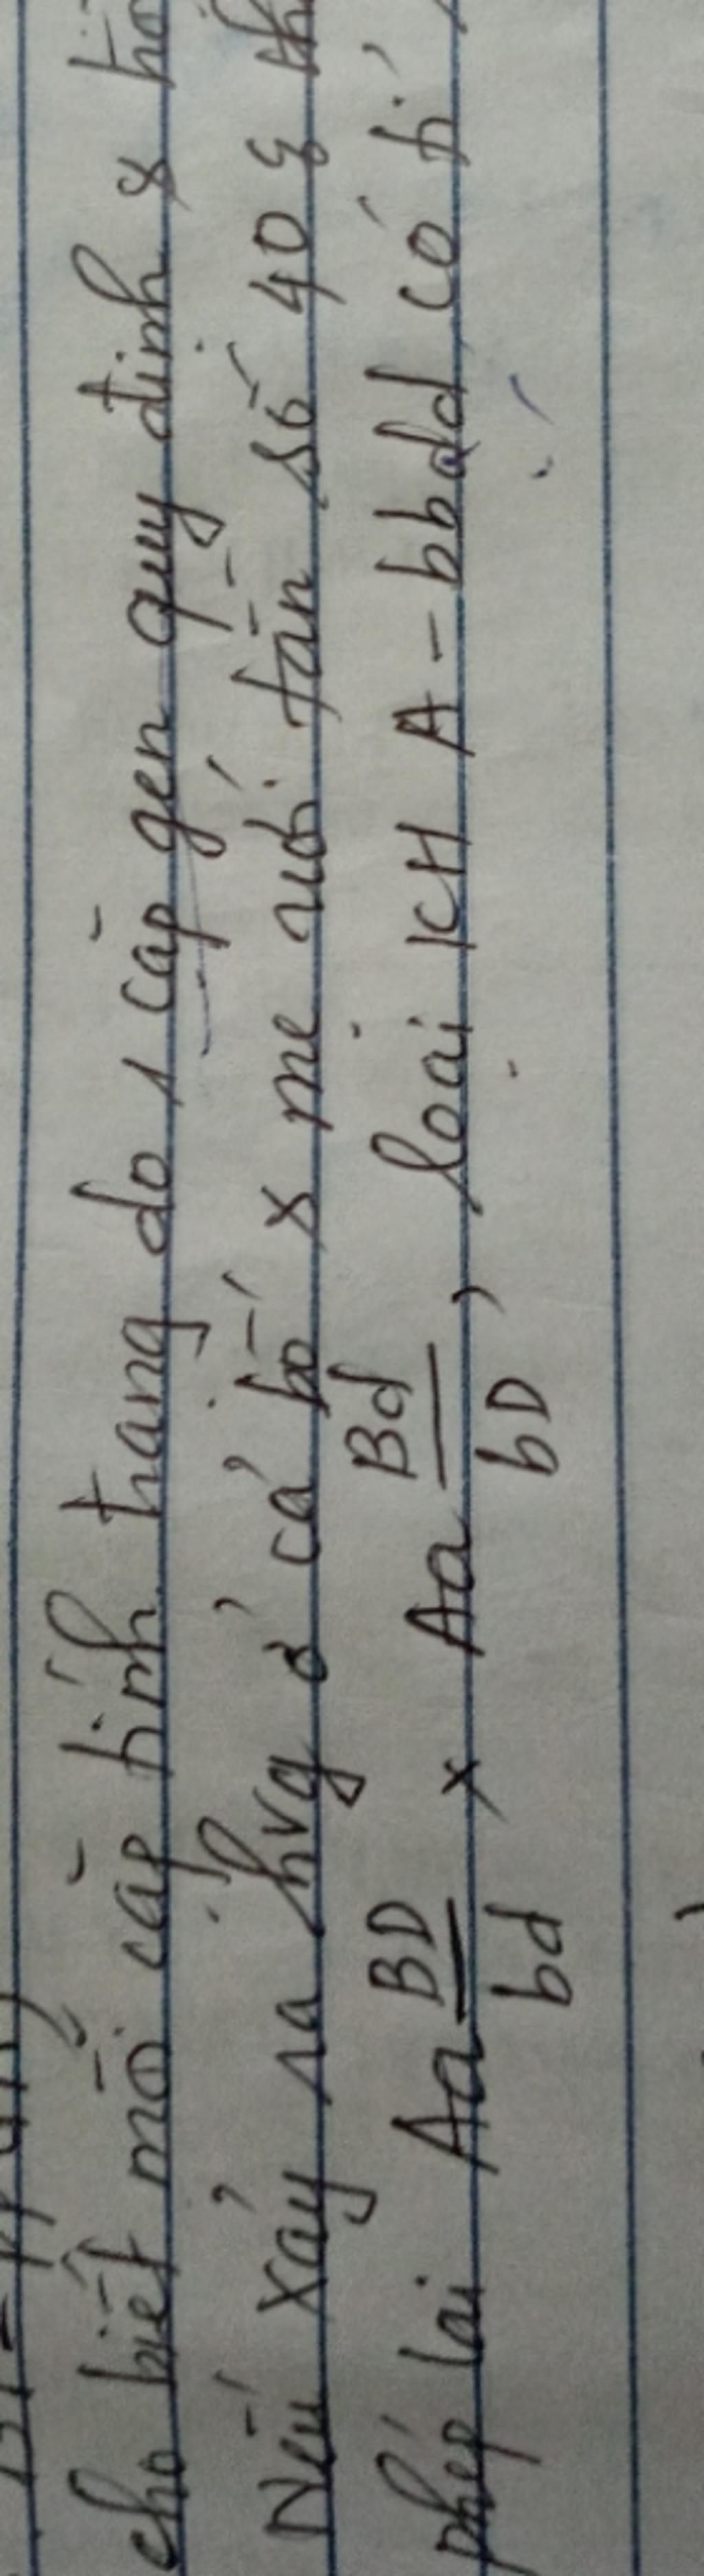 cho biết mỗi cặp tính trạng do 1 cặp gen quy định &
Nếu xảy ra hvg ở cả bố x mẹ với tần số 40%
phép lai Aa BD/bd x Aa Bd/bD, loại KH A-bbdd có tỉ